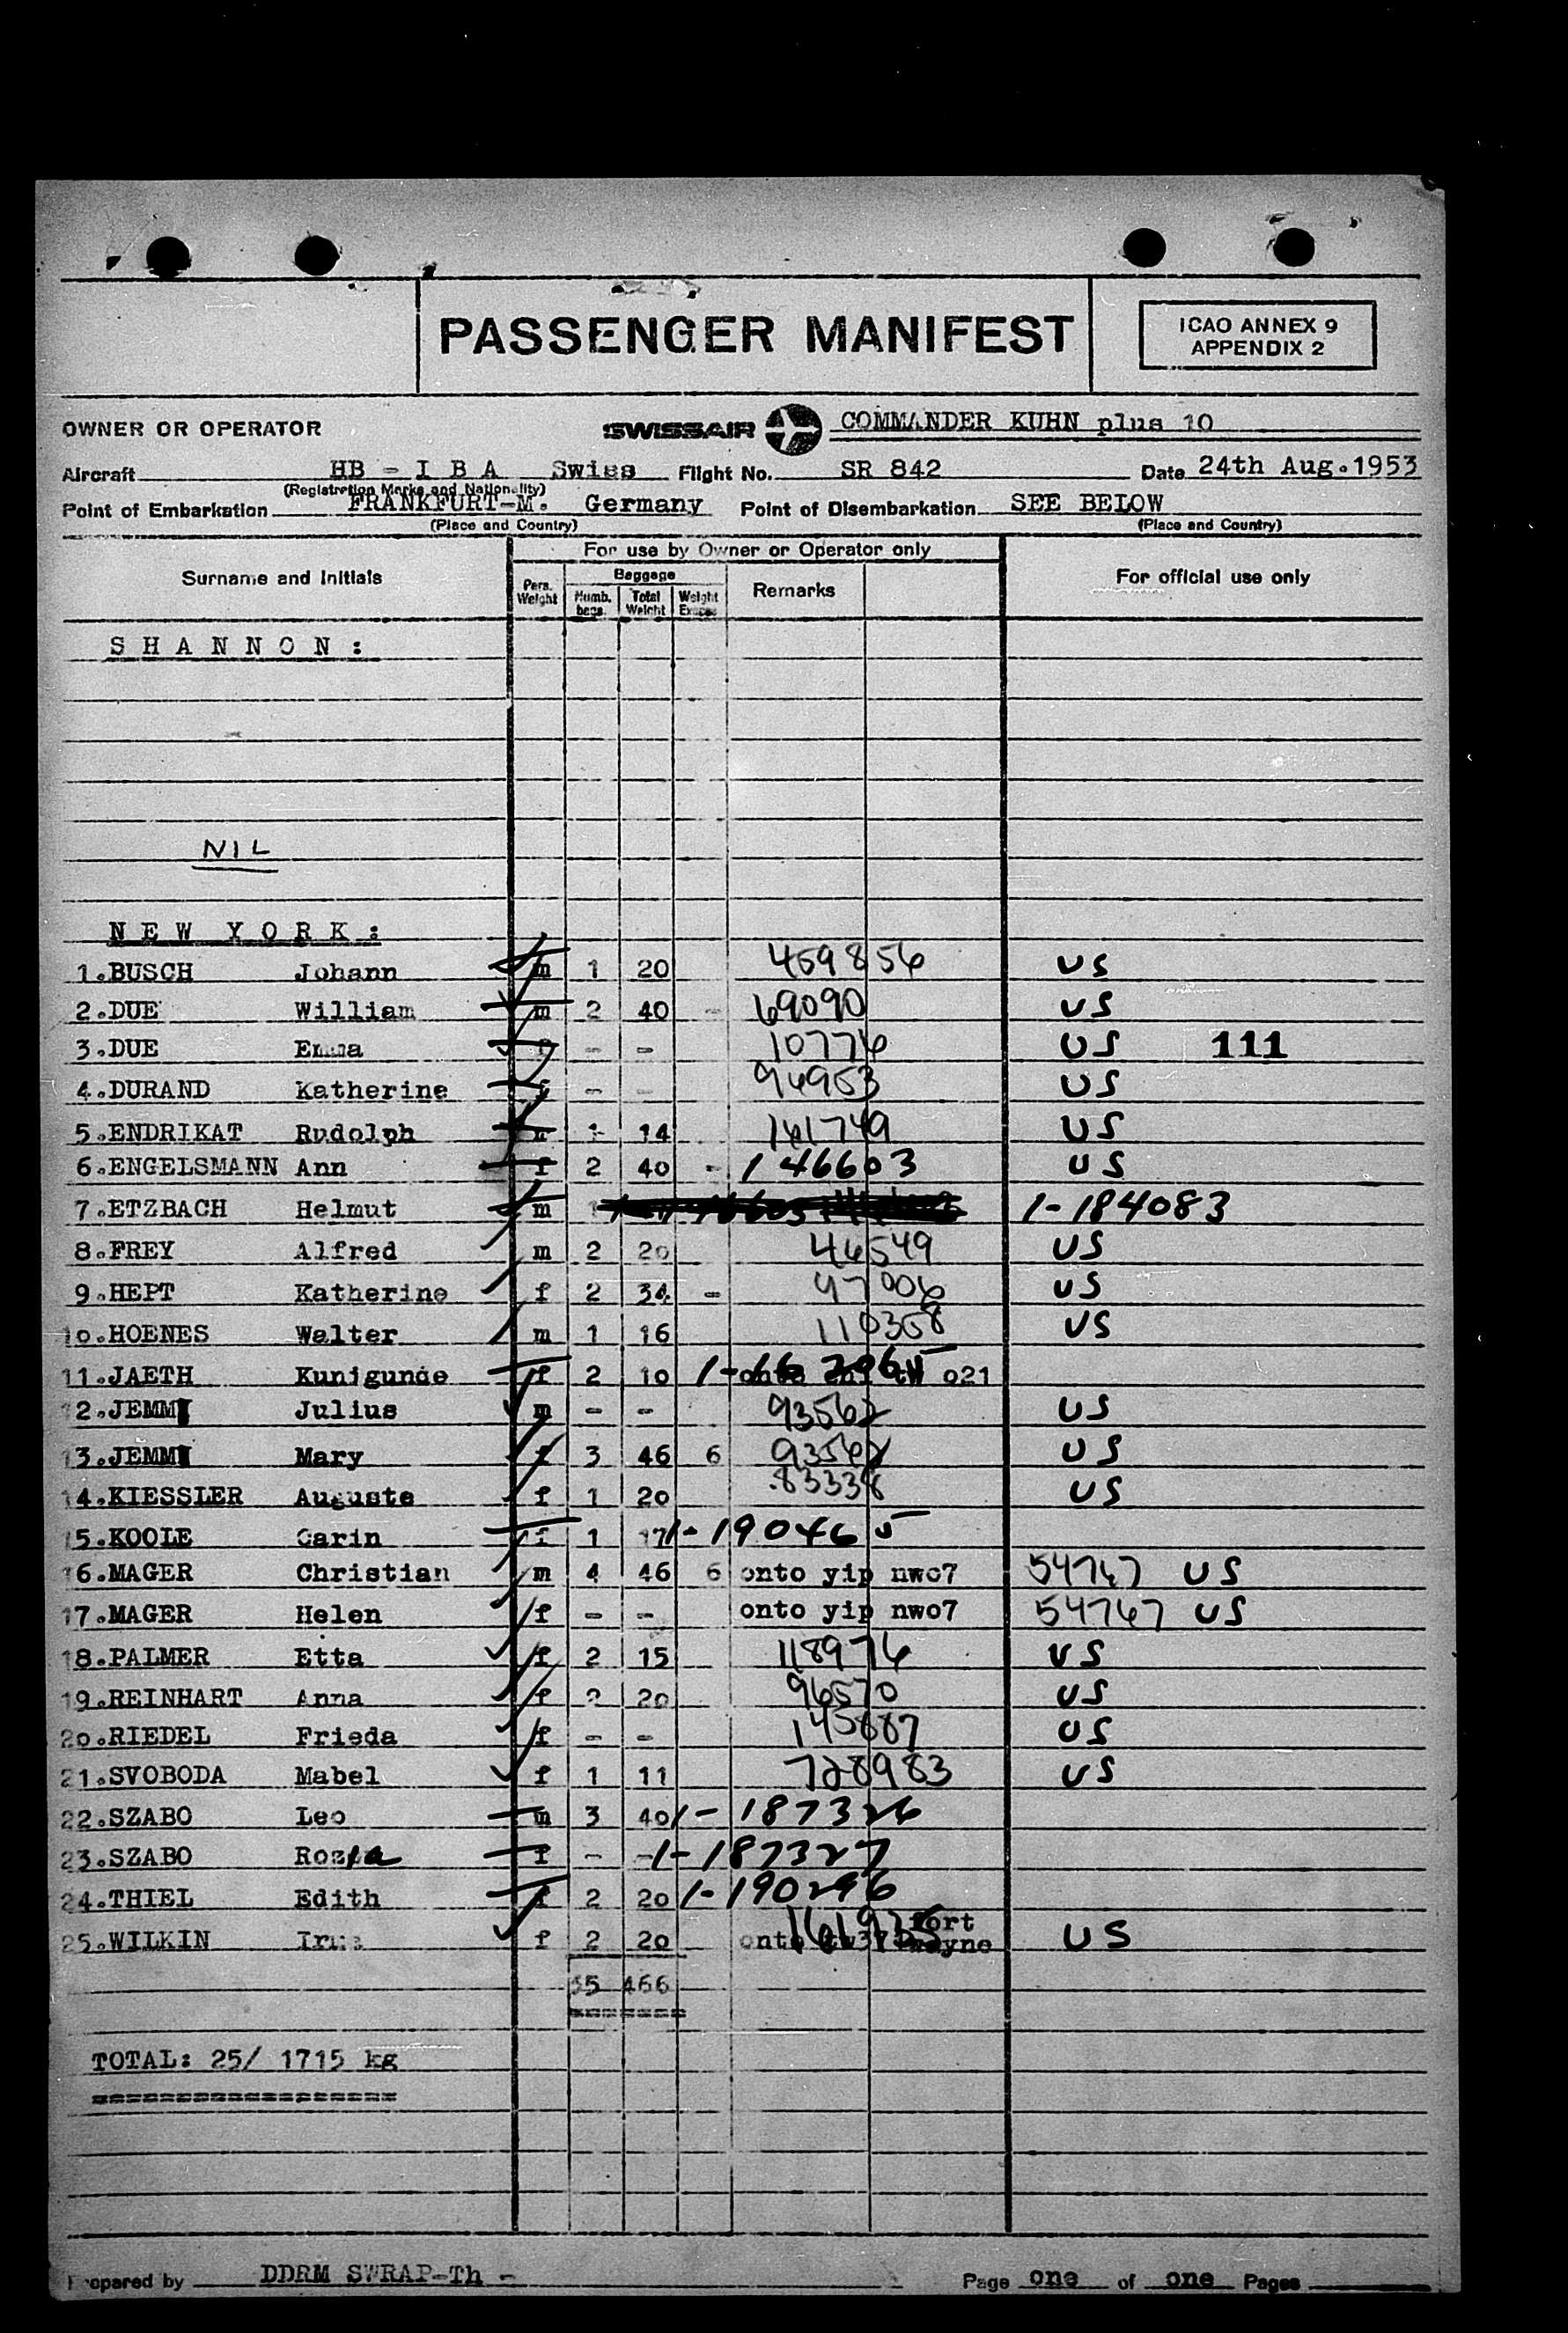 PASSENGER MANIFEST
ICAO ANNEX 9
APPENDIX 2
OWNER OR OPERATOR SWISSAIR COMMANDER KUHN plus 10
Aircraft HB - I B A Swiss Flight No. SR 842 Date 24th Aug.1953
(Registration Marks and Nationality)
Point of Embarkation FRANKFURT-M. Germany Point of Disembarkation SEE BELOW
(Place and Country) (Place and Country)
For use by Owner or Operator only
Surname and Initials Pers. Weight Baggage Numb. bags. Total Weight Weight Excess Remarks For official use only
S H A N N O N :
NIL
N E W Y O R K :
1.BUSCH Johann m 1 20 459856 US
2.DUE William m 2 40 - 69090 US
3.DUE Emma - - 10776 US 111
4.DURAND Katherine f - - 94953 US
5.ENDRIKAT Rudolph 1 14 161749 US
6.ENGELSMANN Ann f 2 40 - 146603 US
7.ETZBACH Helmut m 1-184083
8.FREY Alfred m 2 20 46549 US
9.HEPT Katherine f 2 34 - 97006 US
10.HOENES Walter m 1 16 110358 US
11.JAETH Kunigunde f 2 10 onto 021
12.JEMM Julius m - - 93562 US
13.JEMM Mary f 3 46 6 93562 US
14.KIESSLER Auguste f 1 20 83338 US
15.KOOLE Carin f 1 17 1-190465
16.MAGER Christian m 4 46 6 onto yip nwo7 54767 US
17.MAGER Helen f - - onto yip nwo7 54767 US
18.PALMER Etta f 2 15 118976 US
19.REINHART Anna f 2 20 96570 US
20.RIEDEL Frieda f - - 145887 US
21.SVOBODA Mabel f 1 11 728983 US
22.SZABO Leo m 3 40 1-187326
23.SZABO f - - 1-187327
24.THIEL Edith f 2 20 1-190296
25.WILKIN Irma f 2 20 onto fort wayne US
35 466
TOTAL: 25/ 1715 kg
Prepared by DDRM SWRAP-Th - Page one of one Pages